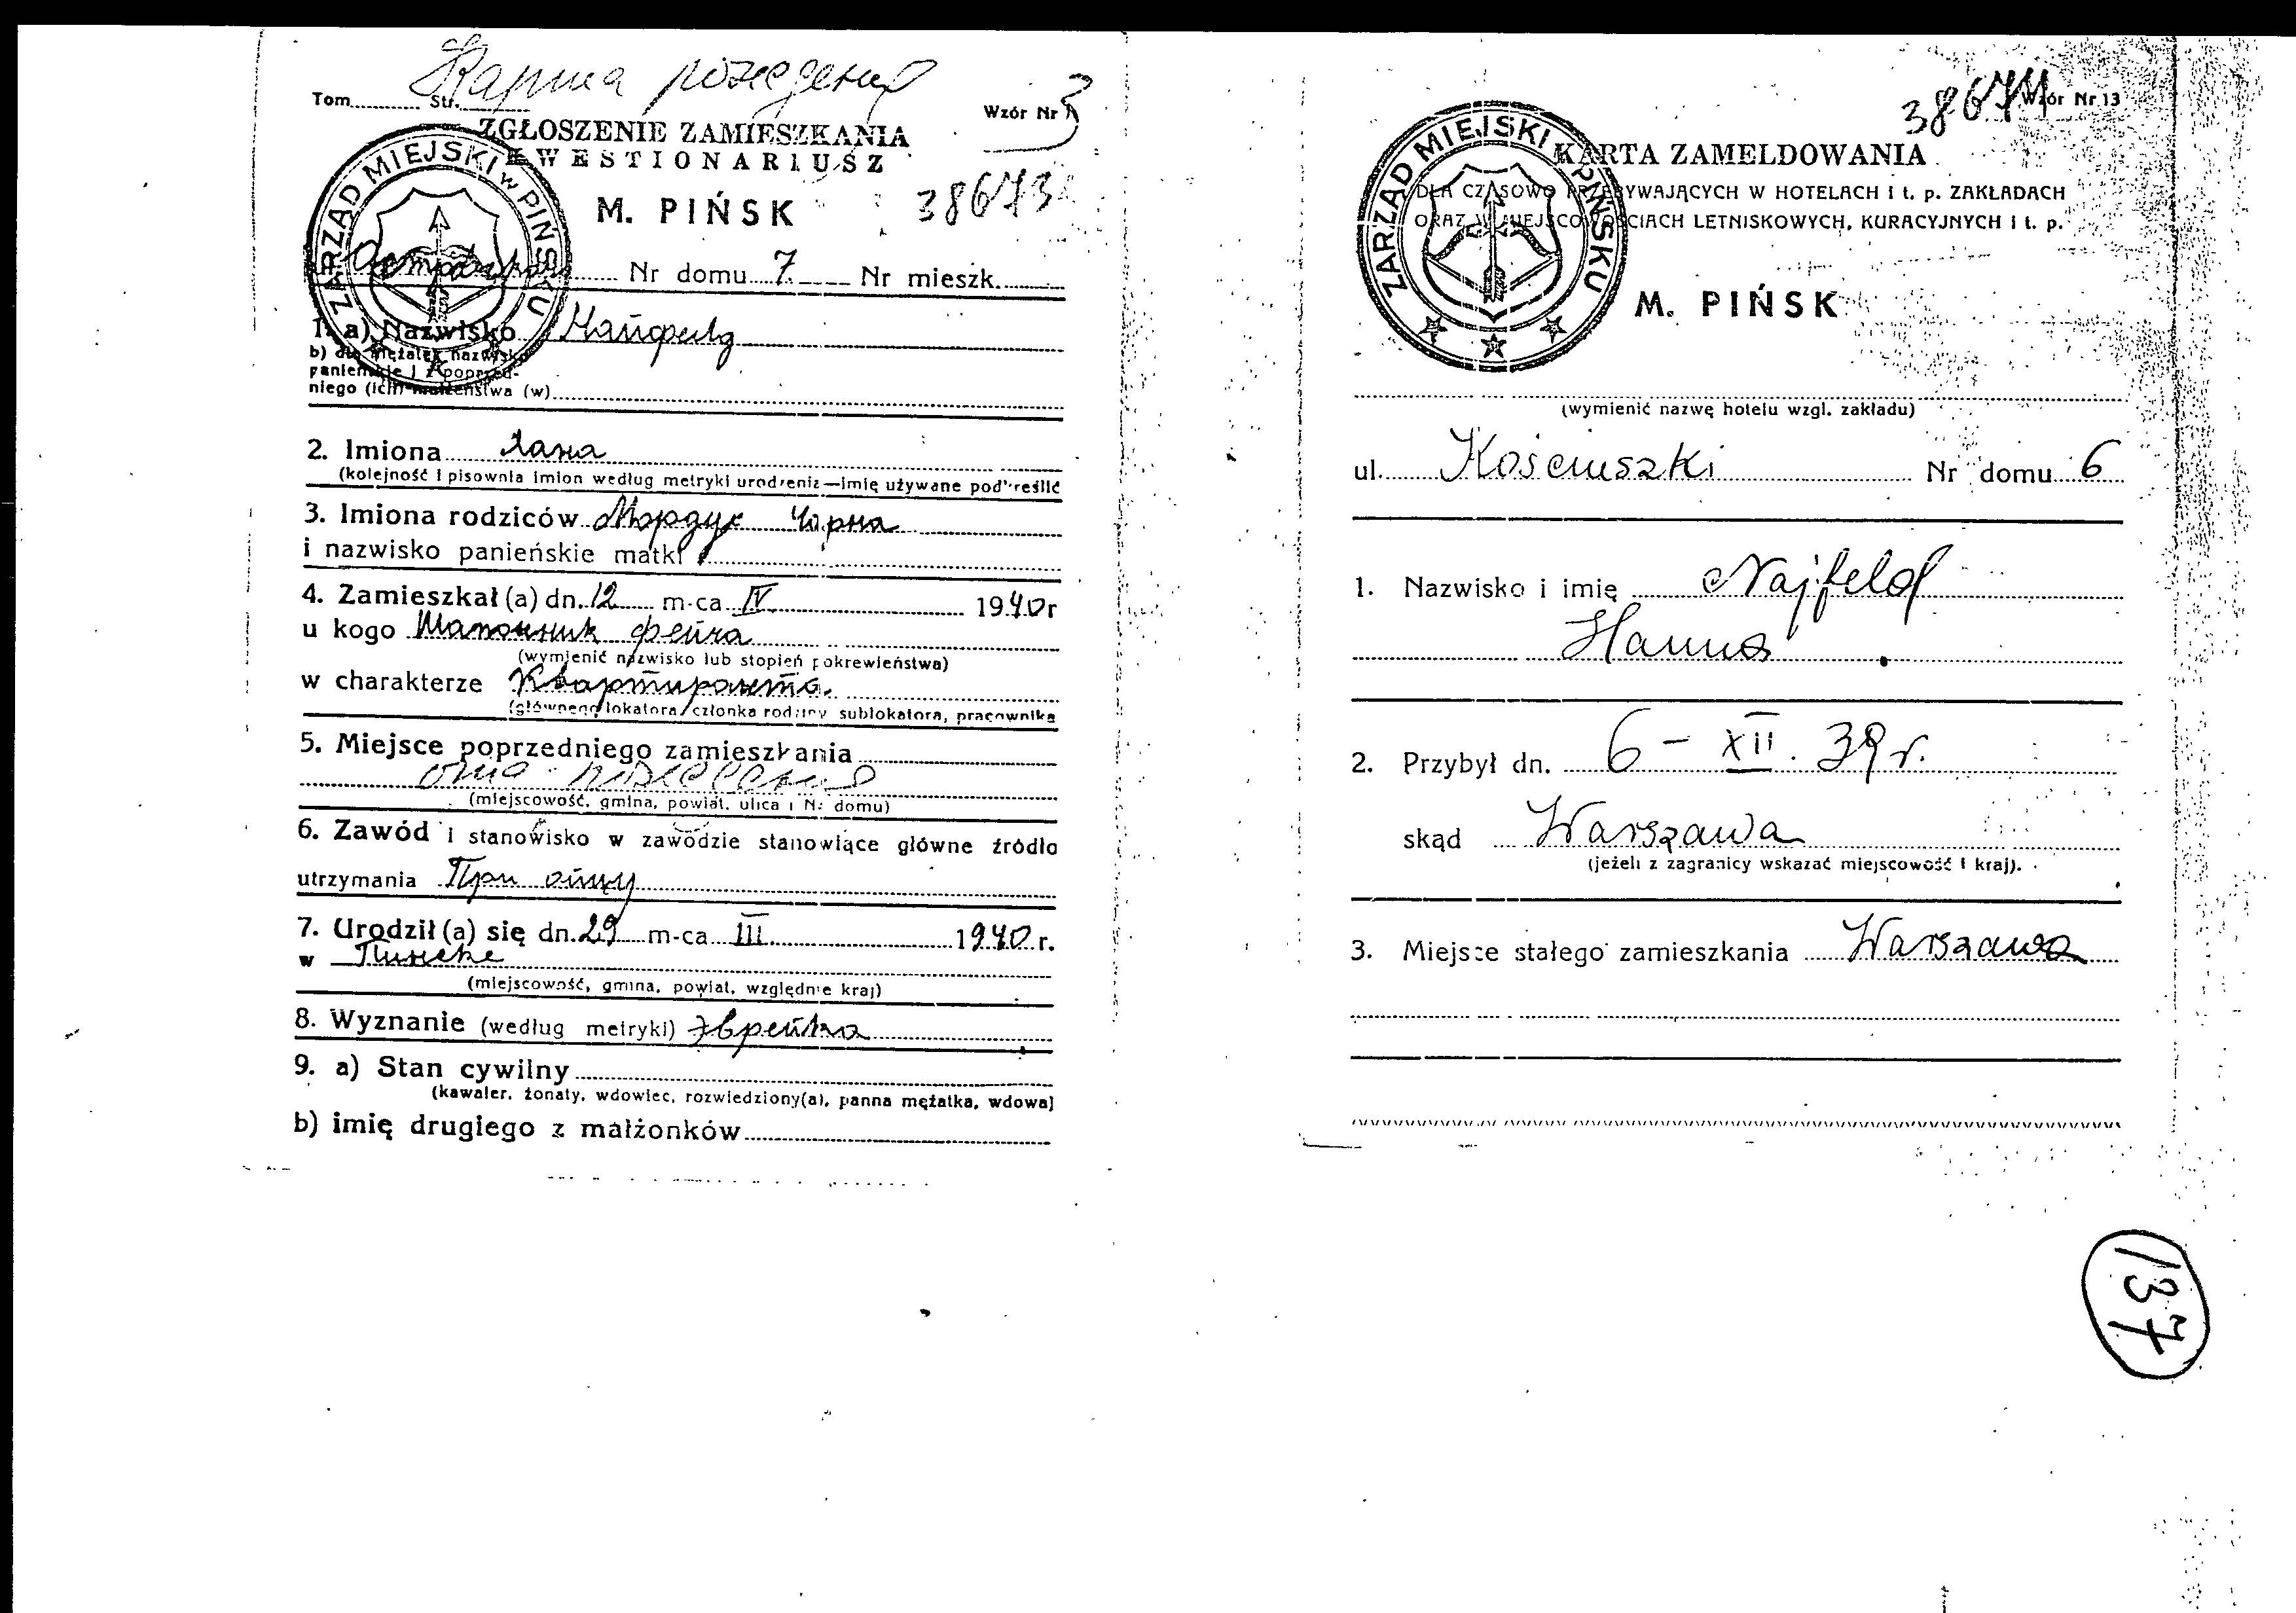 Карта рождения
Tom.......... Str..........
Wzór Nr
ZGŁOSZENIE ZAMIESZKANIA
KWESTIONARIUSZ
ZARZĄD MIEJSKI w PIŃSKU
M. PIŃSK
38673
Nr domu 7 Nr mieszk.
1. a) Nazwisko Найфельд
b) dla mężatek nazwisko
panieńskie i z poprzed-
niego (ich) małżeństwa (w)
2. Imiona Хана
(kolejność i pisownia imion według metryki urodzenia—imię używane podkreślić
3. Imiona rodziców Мордух
i nazwisko panieńskie matki
4. Zamieszkał (a) dn. 12 m-ca IV 1940 r
u kogo Шапошник Фейга
(wymienić nazwisko lub stopień pokrewieństwa)
w charakterze Квартиранта
(głównego lokatora, członka rodziny sublokatora, pracownika
5. Miejsce poprzedniego zamieszkania
(miejscowość, gmina, powiat, ulica i Nr domu)
6. Zawód i stanowisko w zawodzie stanowiące główne źródło
utrzymania При отцу
7. Urodził (a) się dn. 29 m-ca III 1940 r.
w Пинске
(miejscowość, gmina, powiat, względnie kraj)
8. Wyznanie (według metryki) Еврейка
9. a) Stan cywilny
(kawaler, żonaty, wdowiec, rozwiedziony(a), panna mężatka, wdowa)
b) imię drugiego z małżonków
38674
Wzór Nr 13
ZARZĄD MIEJSKI PIŃSKU
KARTA ZAMELDOWANIA
DLA CZASOWO PRZEBYWAJĄCYCH W HOTELACH i t. p. ZAKŁADACH
ORAZ W MIEJSCOWOŚCIACH LETNISKOWYCH, KURACYJNYCH i t. p.
M. PIŃSK
(wymienić nazwę hotelu wzgl. zakładu)
ul. Kościuszki Nr domu 6
1. Nazwisko i imię Najfeld
Hanna
2. Przybył dn. 6 - XII. 39 r.
skąd Warszawa
(jeżeli z zagranicy wskazać miejscowość i kraj).
3. Miejsce stałego zamieszkania Warszawa
137